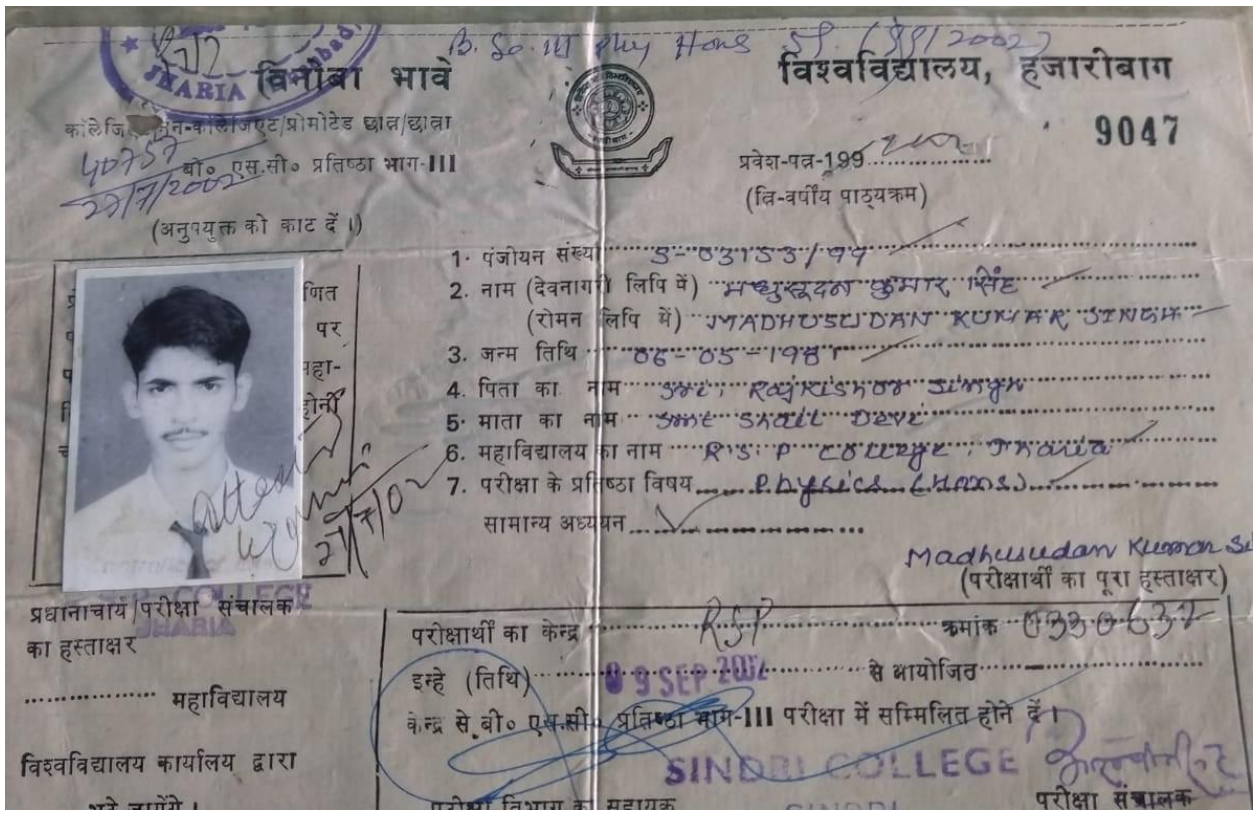 B. Sc. III Phy Hons
विनोबा भावे विश्वविद्यालय, हजारीबाग
JHARIA
9047
कॉलेजिएट/प्रोमोटेड छात्र/छात्रा
40757
बी० एस.सी० प्रतिष्ठा भाग-III
27/7/2002
(अनुपयुक्त को काट दें।)
प्रवेश-पत्र-199
(त्रि-वर्षीय पाठ्यक्रम)
1. पंजीयन संख्या S-03153/99
2. नाम (देवनागरी लिपि में) मधुसूदन कुमार सिंह
(रोमन लिपि में) MADHUSUDAN KUMAR SINGH
3. जन्म तिथि 06-05-1981
4. पिता का नाम Sri. Rajkishor Singh
5. माता का नाम Smt Shail Devi
6. महाविद्यालय का नाम R.S.P College, Jharia
7. परीक्षा के प्रतिष्ठा विषय Physics (Hons)
सामान्य अध्ययन
Madhusudan Kumar
(परीक्षार्थी का पूरा हस्ताक्षर)
णित
पर
महा-
होनी
27/7/02
COLLEGE
JHARIA
प्रधानाचार्य/परीक्षा संचालक
का हस्ताक्षर
महाविद्यालय
विश्वविद्यालय कार्यालय द्वारा
भरे जायेंगे।
परीक्षार्थी का केन्द्र RSP क्रमांक
इन्हे (तिथि) 09 SEP 2002 से आयोजित
केन्द्र से बी० एस.सी० प्रतिष्ठा भाग-III परीक्षा में सम्मिलित होने दें।
SINDRI COLLEGE
SINDRI
परीक्षा विभाग का सहायक
परीक्षा संचालक